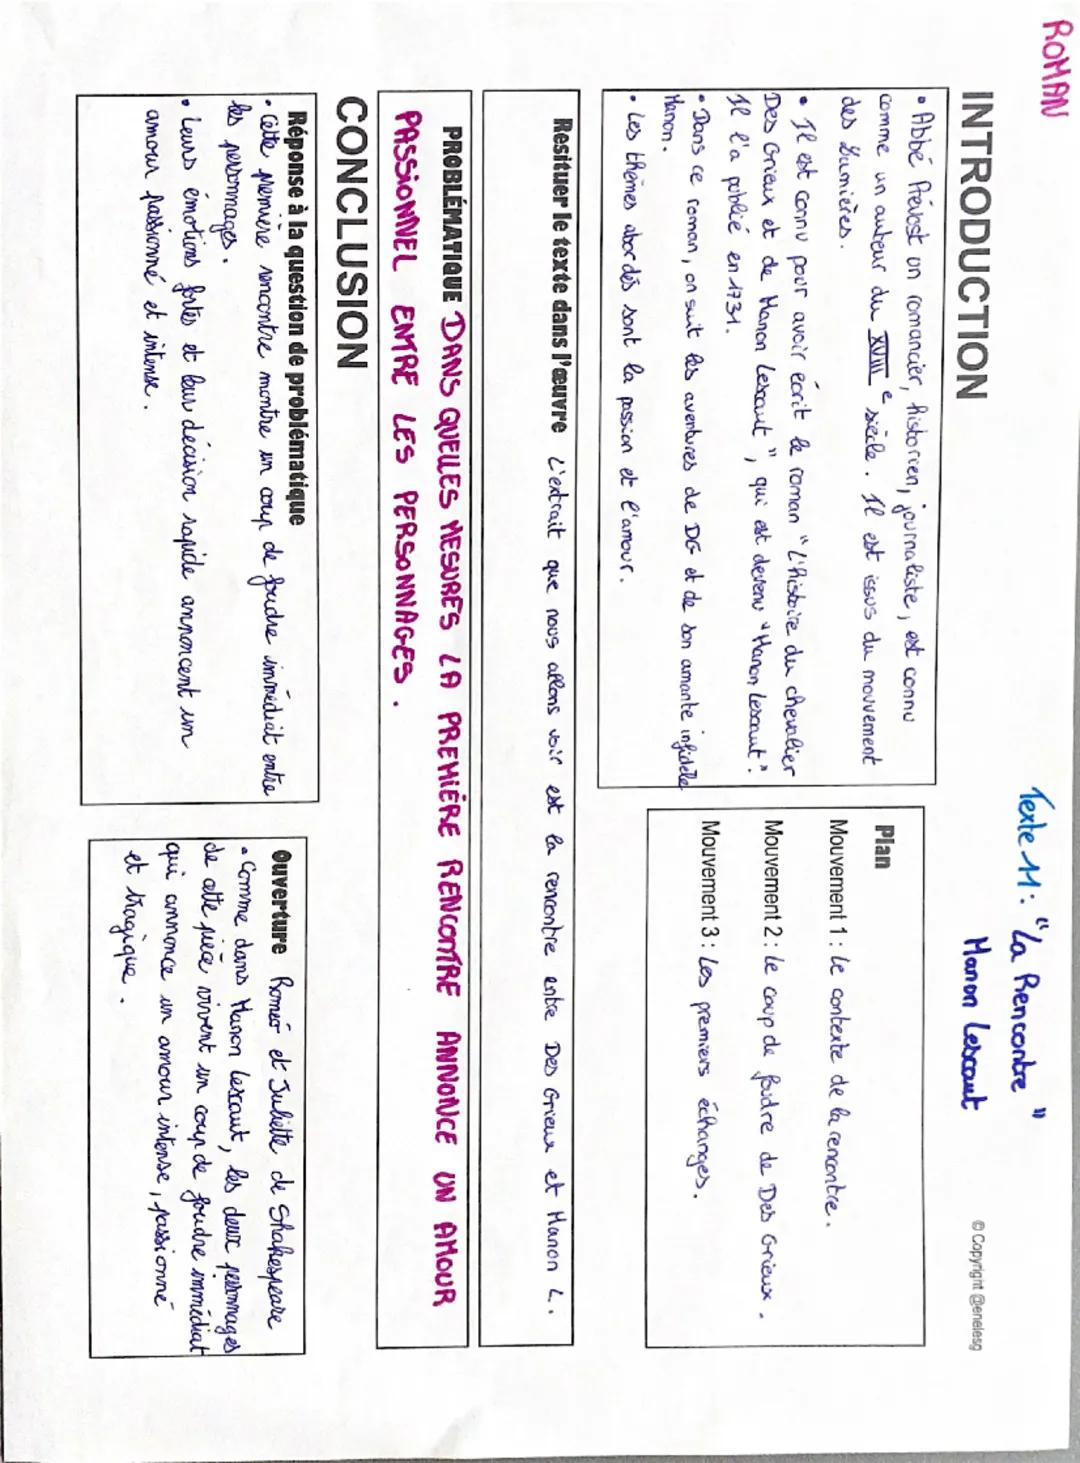 ROMAN
Texte 11 : "La Rencontre"
Manon Lescaut
© Copyright @enelesg
INTRODUCTION
• Abbé Prévost un romancier, historien, journaliste, est connu
comme un auteur du XVIII e siècle. Il est issus du mouvement
des Lumières.
• Il est connu pour avoir écrit le roman "L'histoire du chevalier
Des Grieux et de Manon Lescaut", qui est devenu "Manon Lescaut".
Il l'a publié en 1731.
• Dans ce roman, on suit les aventures de DG et de son amante infidèle
Manon.
• Les thèmes abordés sont la passion et l'amour.
Plan
Mouvement 1 : Le contexte de la rencontre.
Mouvement 2 : Le coup de foudre de Des Grieux.
Mouvement 3 : Les premiers échanges.
Resituer le texte dans l'œuvre L'extrait que nous allons voir est la rencontre entre Des Grieux et Manon L.
PROBLÉMATIQUE DANS QUELLES MESURES LA PREMIÈRE RENCONTRE ANNONCE UN AMOUR
PASSIONNEL ENTRE LES PERSONNAGES.
CONCLUSION
Réponse à la question de problématique
• Cette première rencontre montre un coup de foudre immédiat entre
les personnages.
• Leurs émotions fortes et leur décision rapide annoncent un
amour passionné et intense.
Ouverture Roméo et Juliette de Shakespeare
• Comme dans Manon Lescaut, les deux personnages
de cette pièce vivent un coup de foudre immédiat
qui annonce un amour intense, passionné
et tragique.